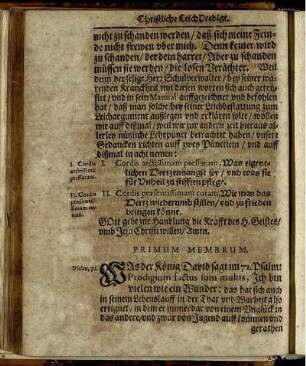 Christliche LeichPredigt.
nicht zu schanden werden/ daß sich meine Fein-
de nicht frewen vber mich. Denn keiner wird
zu schanden/ der dein harret/ Aber zu schanden
müssen sie werden/ die losen Verächter. Weil
denn der selige Herr Schulverwalter/ bey seiner wä-
renden Kranckheit mit diesen worten sich auch getrö-
stet/ und in sein Manual auffgezeichnet und befohlen
hat/ daß man solche bey seiner Leichbestattung zum
Leichargument außlegen und erklären solte/ wollen
wir auff dißmal/ weil wir zur andern zeit hieraus al-
lerley nützliche Lehrpunct betrachtet haben/ unsere
Gedancken richten auff zwey Pünctlein/ und auff
dißmal in acht nemen:
I. Cordis arctissimi pressuram.
I. Cordis arctissimi pressuram, Was eigent-
lichen Hertzensangst sey/ und was sie
für Unheil zu stifften pflege.
II. Cordis
II. Cordis præsentissimam curam, Wie man das
Hertz wiederumb stillen/ und zu frieden
bringen könne.
GOtt gebe zur Handlung die Krafft des H. Geistes/
umb Jesu Christi willen/ Amen.
PRIMUM MEMBRUM.
Psalm. 71.
WAs der König David sagt im 71. Psalm:
Prodigium factus sum multis, Ich bin
vielen wie ein Wunder: das hat sich auch
in seinem Lebenslauff in der That und Warheit also
ereignet/ in dem er immerdar von einem Unglück in
das andere/ und zwar von Jugend auff kommen und
gerathen